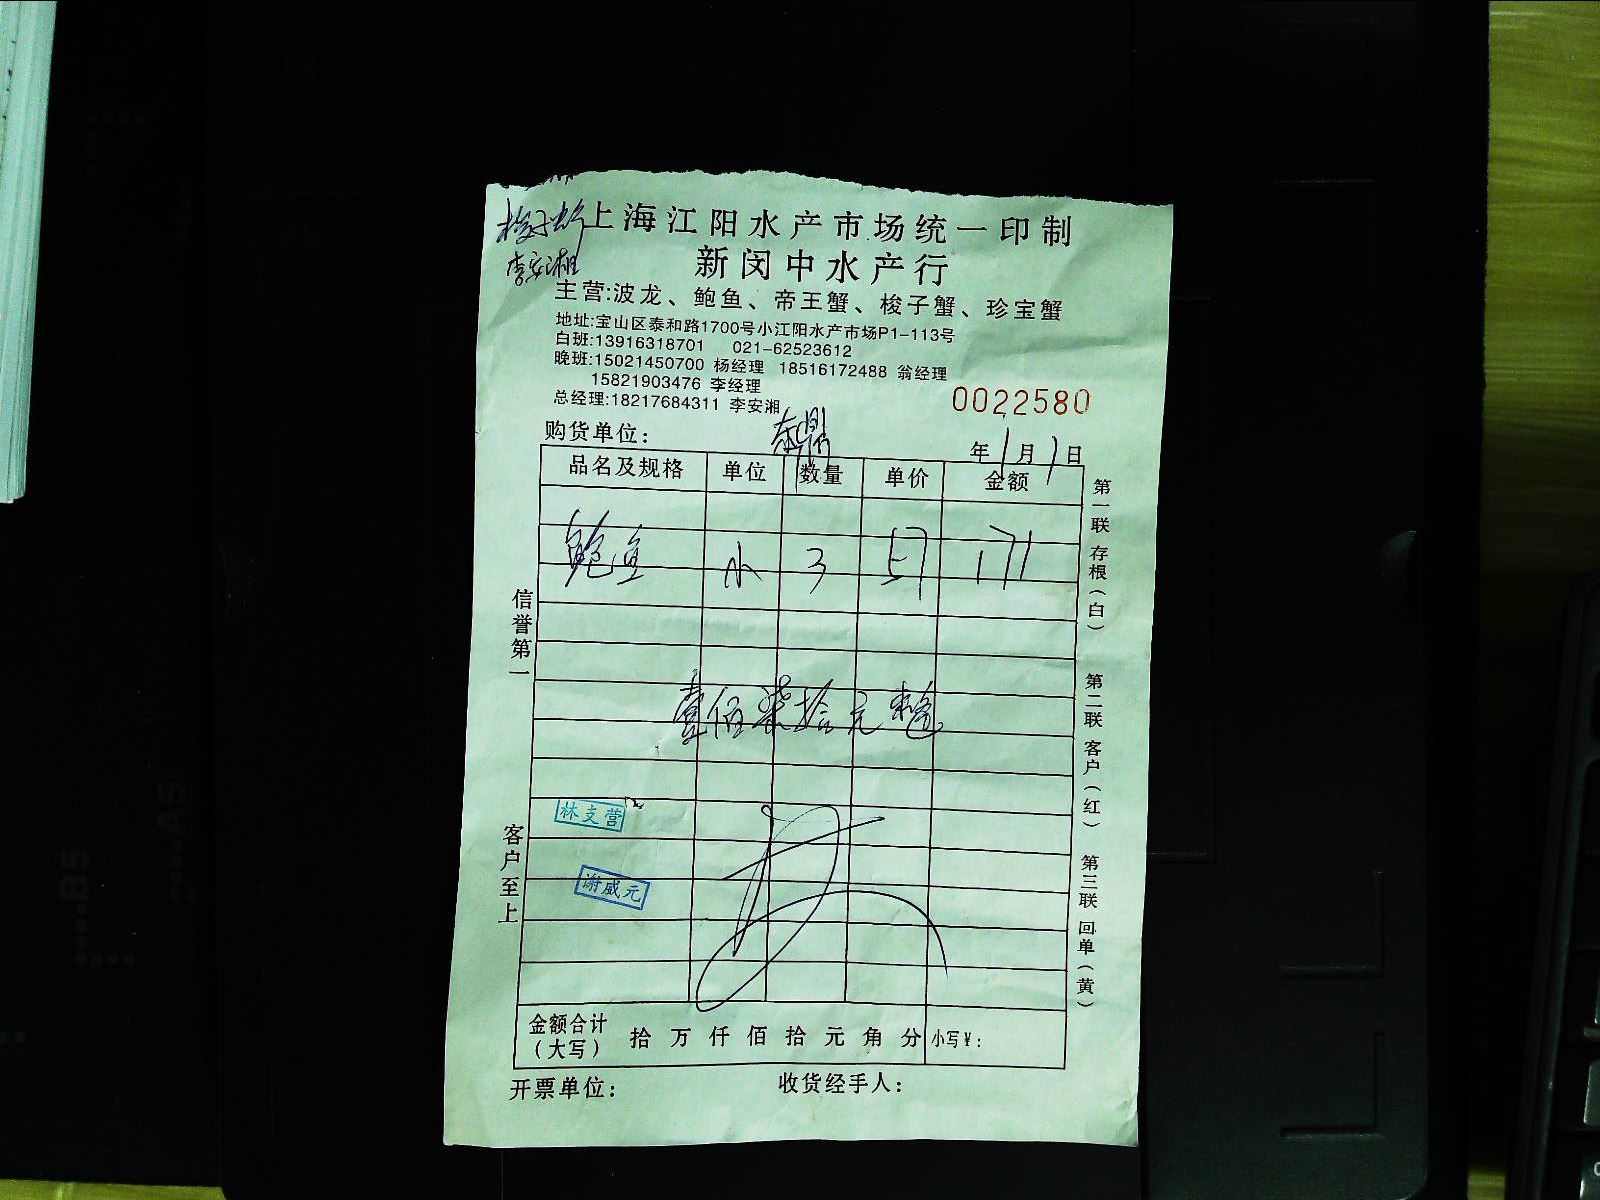 梭子蟹
李安湘
上海江阳水产市场统一印制
新闵中水产行
主营:波龙、鲍鱼、帝王蟹、梭子蟹、珍宝蟹
地址:宝山区泰和路1700号小江阳水产市场P1-113号
白班:13916318701 021-62523612
晚班:15021450700 杨经理 18516172488 翁经理
15821903476 李经理
总经理:18217684311 李安湘
0022580
购货单位: 年1月1日
品名及规格 单位 数量 单价 金额
鲍鱼 小 3 57 171
壹佰柒拾元整
林支营
谢威元
信誉第一
客户至上
第一联 存根(白)
第二联 客户(红)
第三联 回单(黄)
金额合计(大写) 拾 万 仟 佰 拾 元 角 分 小写¥:
开票单位: 收货经手人:
B5
A5